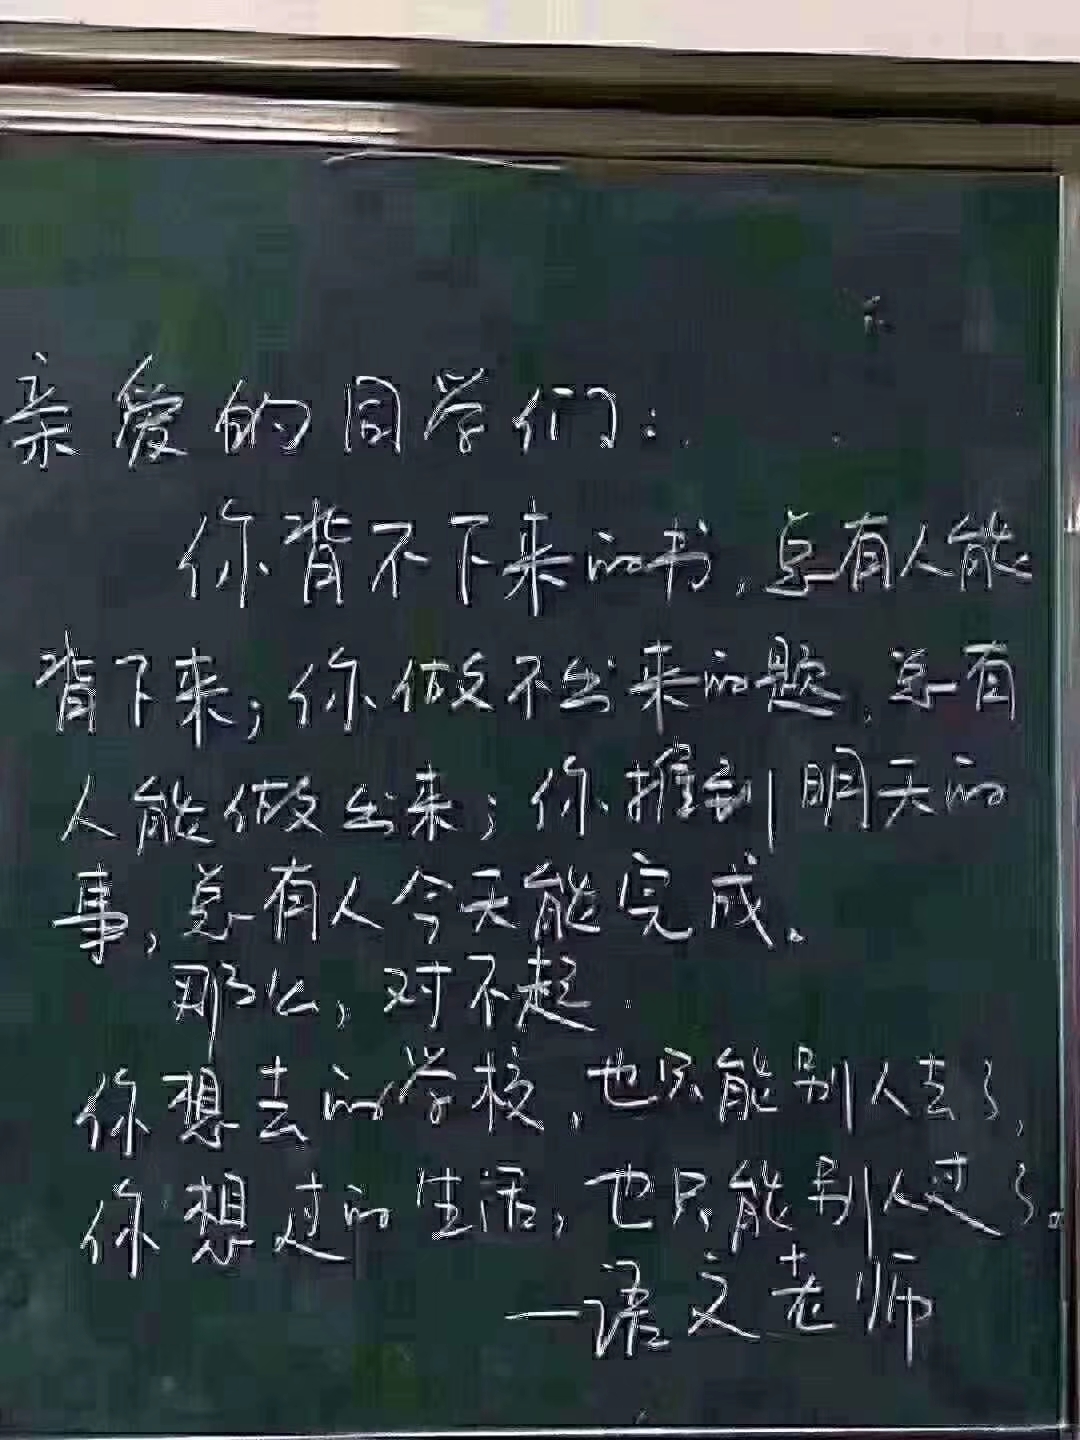 亲爱的同学们:
你背不下来的书,总有人能
背下来;你做不出来的题,总有
人能做出来;你推到明天的
事,总有人今天能完成。
那么,对不起
你想去的学校,也只能别人去了,
你想过的生活,也只能别人过了。
—语文老师